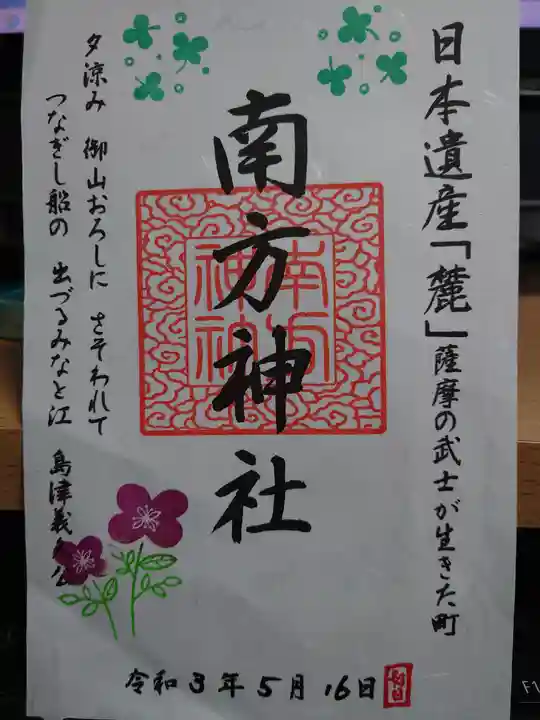 日本遺産「麓」薩摩の武士が生きた町
南方神社
南方
神社
夕涼み 御山おろしに さそわれて
つなぎし船の 出づるみなと江 島津義久公
令和3年5月16日